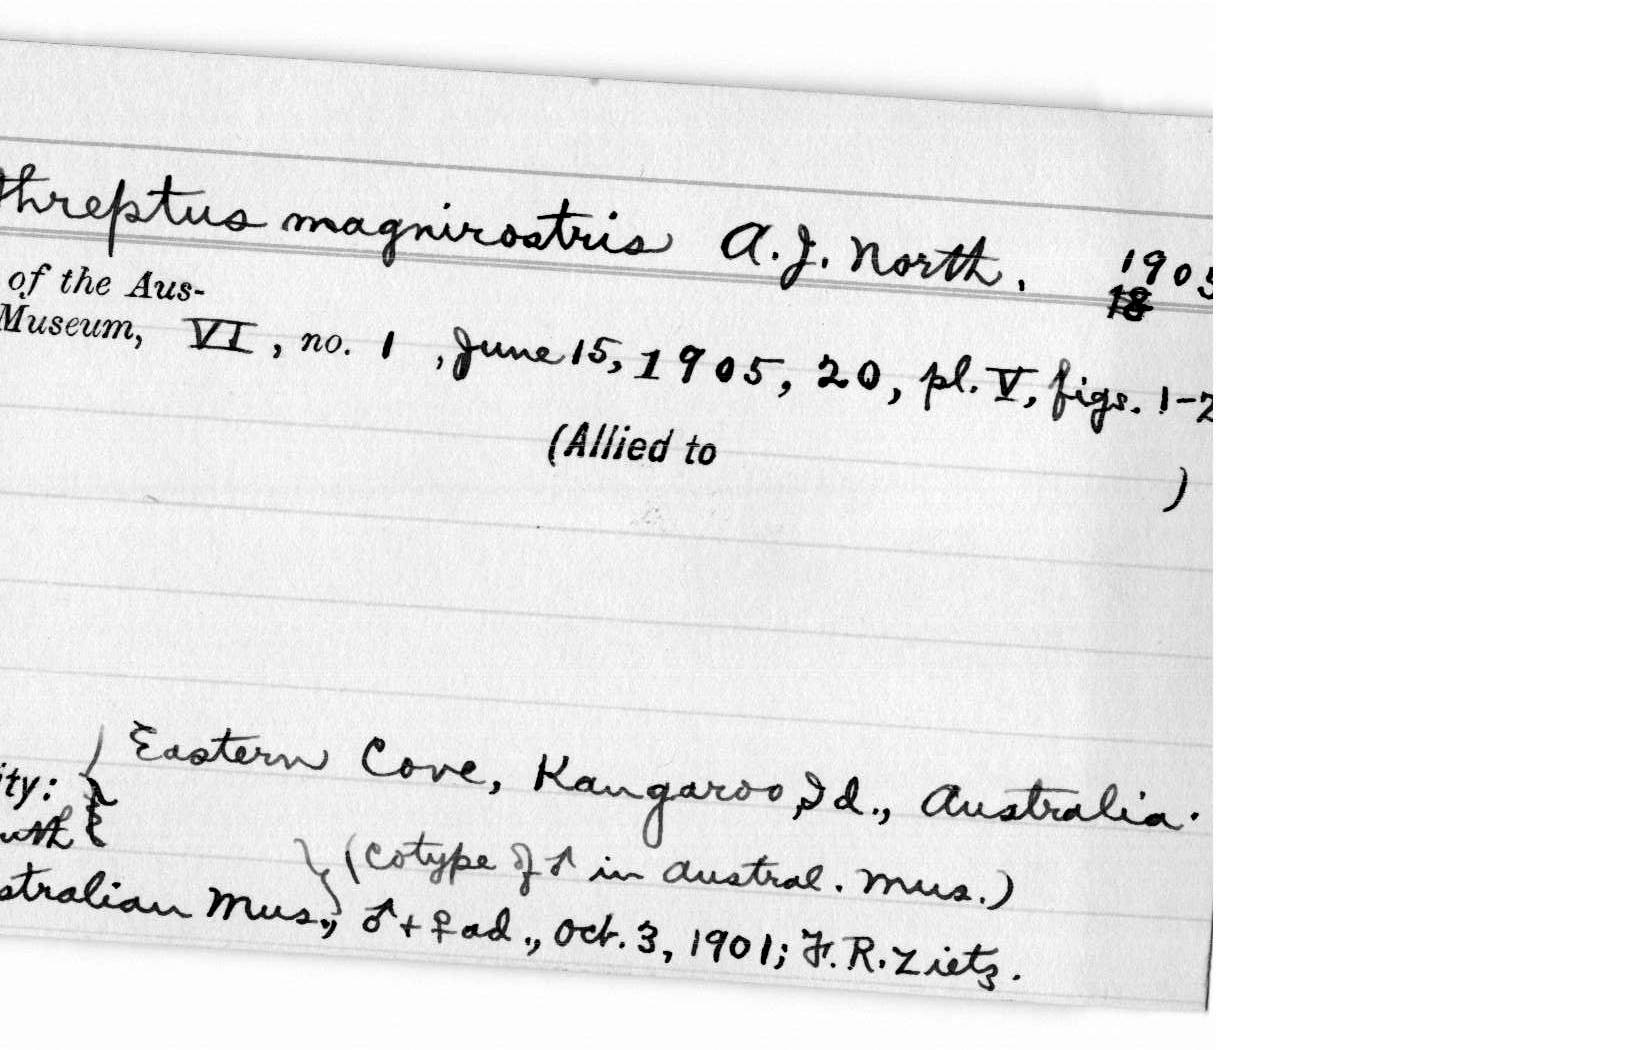 threptus magnirostris A.J. North. 1905
18
of the Aus-
Museum, VI, no. 1, June 15, 1905, 20, pl. V, figs. 1-2
(Allied to )
Eastern Cove, Kangaroo Id., Australia.
ity:
uth
(cotype of ♂ in Austral. Mus.)
stralian Mus., ♂ + ♀ ad., Oct. 3, 1901; F. R. Zietz.